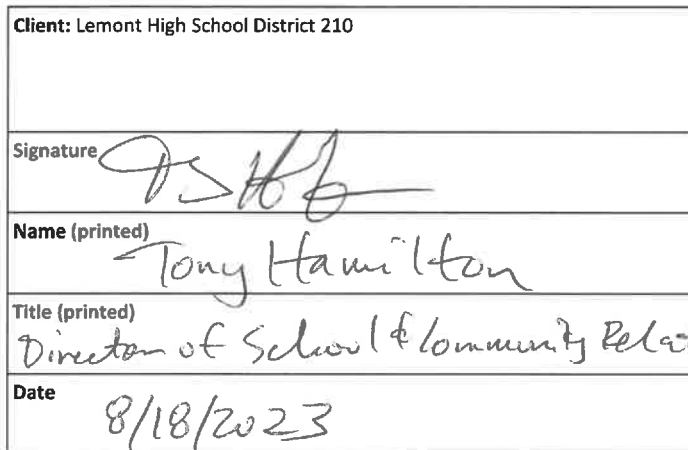 Client: Lemont High School District 210
Signature
Name (printed)
Tony Hamilton
Title (printed)
Director of School & Community Rela
Date
8/18/2023